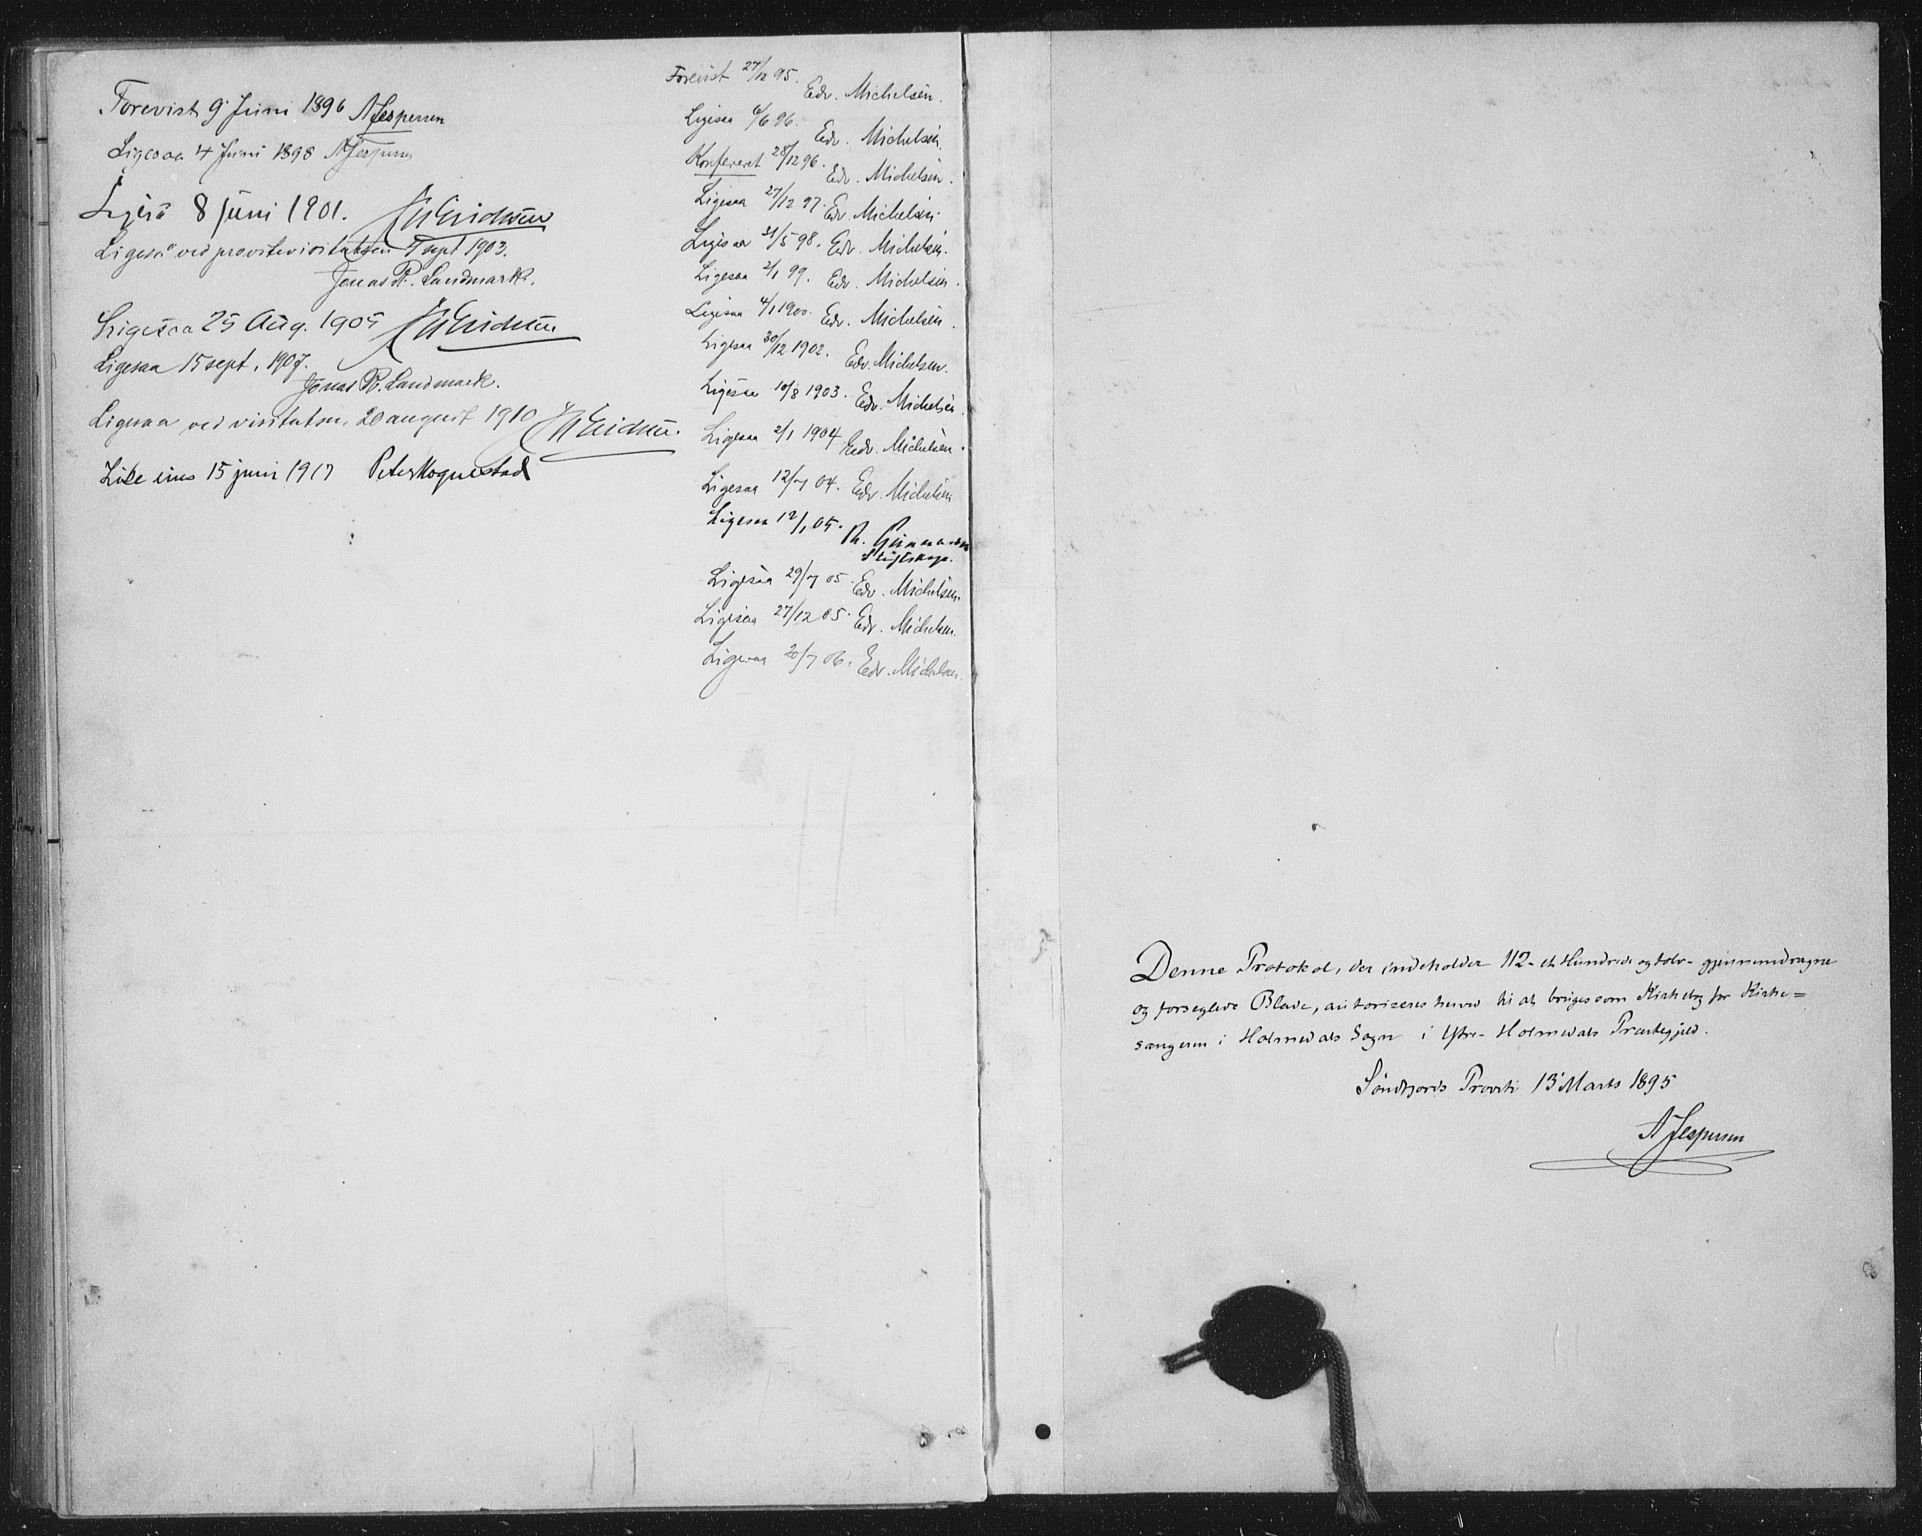 Forevist 9 Juni 1896 A Jespersen
Ligesaa 4 Juni 1898 A Jespersen
Ligeså 8 juni 1901.
Ligeså ved provstevisitatsen 4 sept 1903.
Jonas R. Landmark.
Ligesaa 25 Aug. 1905
Ligesaa 15 sept. 1907.
Jonas R. Landmark.
Ligesaa ved visitatsen, 20 august 1910
Like eins 15 juni 1917 Peter Hognestad
Forevist 27/12 95. Edv. Michelsen.
Ligesaa 6/6 96. Edv. Michelsen.
Konfereret 28/12 96. Edv. Michelsen.
Ligesaa 27/12 97. Edv. Michelsen.
Ligesaa 31/5 98. Edv. Michelsen.
Ligesaa 2/1 99. Edv. Michelsen.
Ligesaa 4/1 1900. Edv. Michelsen.
Ligesaa 30/12 1902. Edv. Michelsen.
Ligesaa 10/8 1903. Edv. Michelsen.
Ligesaa 2/1 1904. Edv. Michelsen.
Ligesaa 12/7 04. Edv. Michelsen
Ligesaa 12/1 05.
Stiftskap.
Ligesaa 29/7 05. Edv. Michelsen.
Ligesaa 27/12 05. Edv. Michelsen.
Ligesaa 20/7 06. Edv. Michelsen.
Denne Protokol, der indeholder 112 - et Hundrede og tolv - gjennemdragne
og forseglede Blade, autoriseres herved til at bruges som Kirkebog for Kirke=
sangeren i Holmedals Sogn i Ytre-Holmedals Præstegjeld.
Søndfjords Provsti 13 Marts 1895
A Jespersen